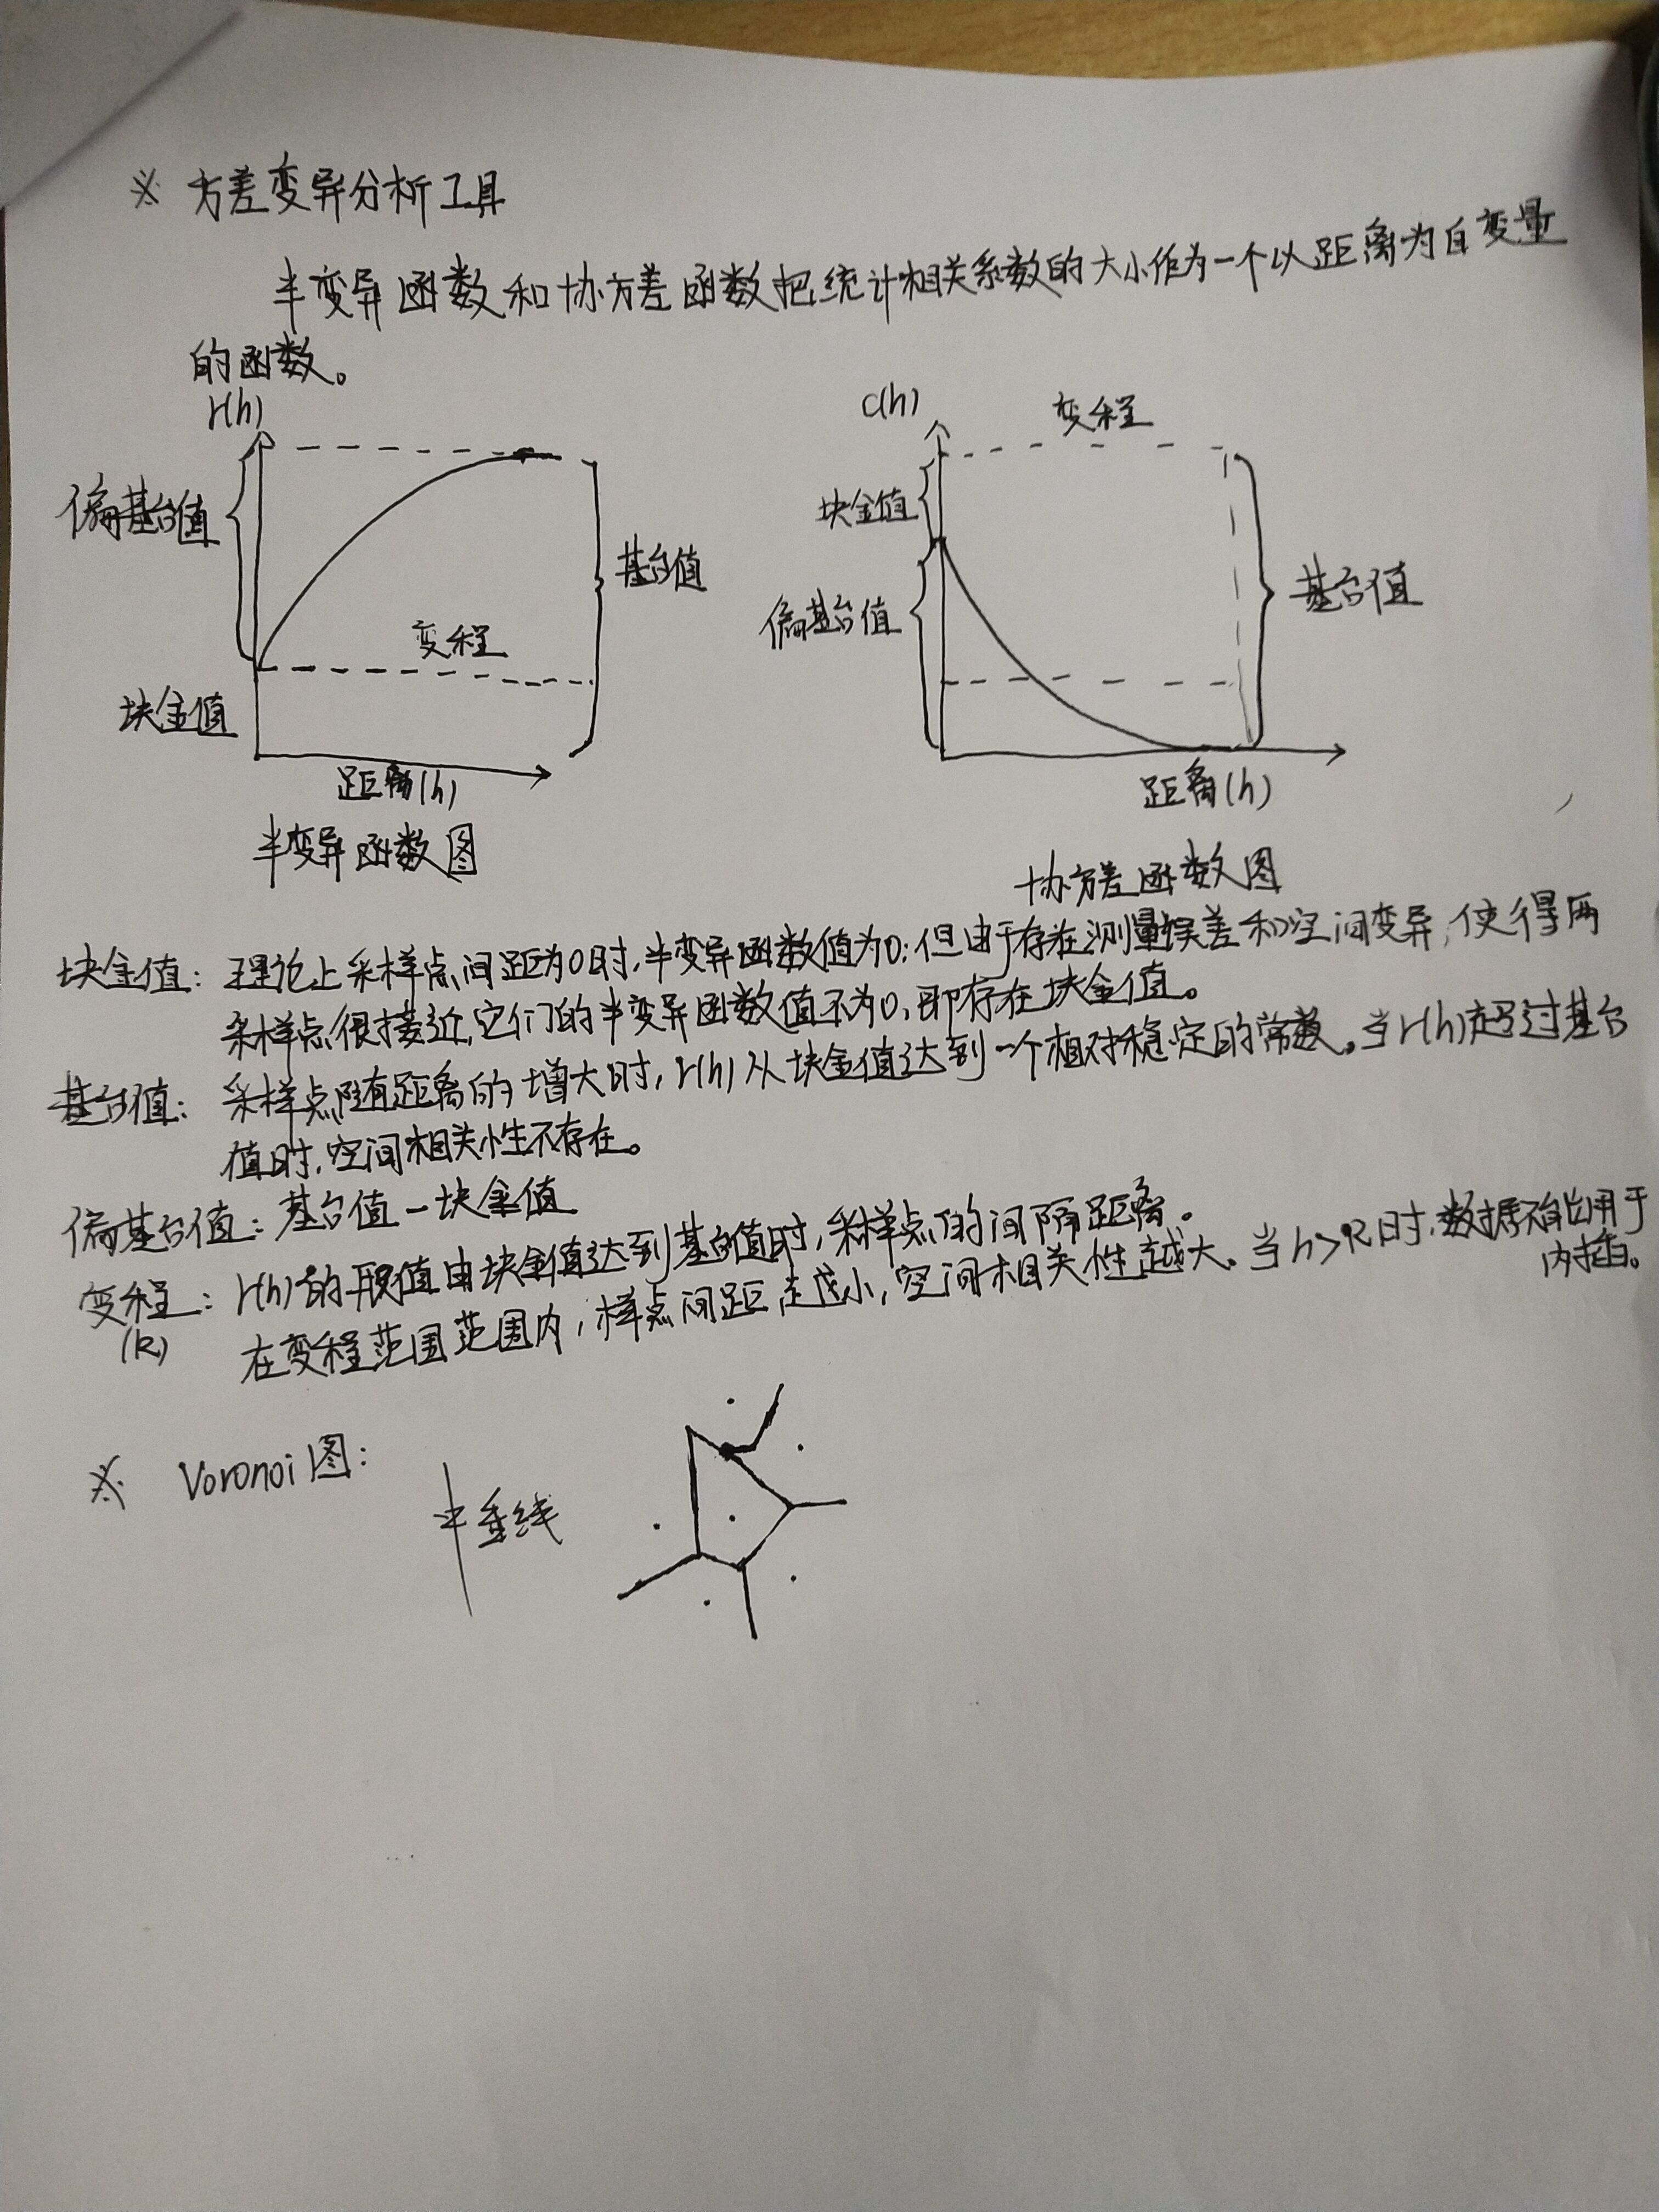 ※ 方差变异分析工具
半变异函数和协方差函数把统计相关系数的大小作为一个以距离为自变量
的函数。
r(h)
偏基台值
基台值
变程
块金值
距离(h)
半变异函数图
c(h)
变程
块金值
偏基台值
基台值
距离(h)
协方差函数图
块金值：理论上采样点间距为0时,半变异函数值为0;但由于存在测量误差和空间变异,使得两
采样点很接近,它们的半变异函数值不为0,即存在块金值。
基台值：采样点随距离的增大时,r(h)从块金值达到一个相对稳定的常数。当r(h)超过基台
值时,空间相关性不存在。
偏基台值：基台值-块金值
变程：r(h)的取值由块金值达到基台值时,采样点的间隔距离。
(R) 在变程范围范围内,样点间距越小,空间相关性越大。当h>R时,数据不能用于
内插。
※ Voronoi图：
中垂线